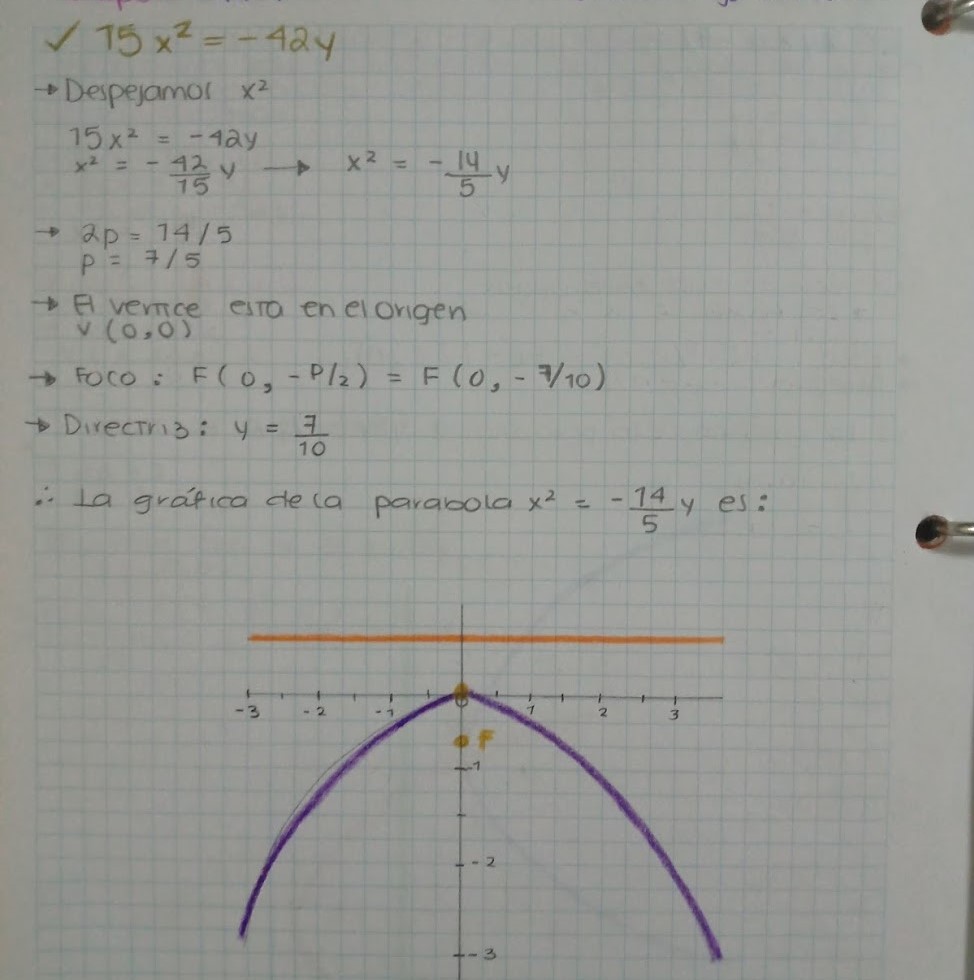 ✓ 15x² = -42y
→ Despejamos x²
15x² = -42y
x² = -42/15 y → x² = -14/5 y
→ 2p = 14/5
p = 7/5
→ El vertice esta en el origen
V(0,0)
→ Foco: F(0, -P/2) = F(0, -7/10)
→ Directriz: y = 7/10
∴ La gráfica de la parabola x² = -14/5 y es:
-3 -2 -1 0 1 2 3
F
-1
-2
-3